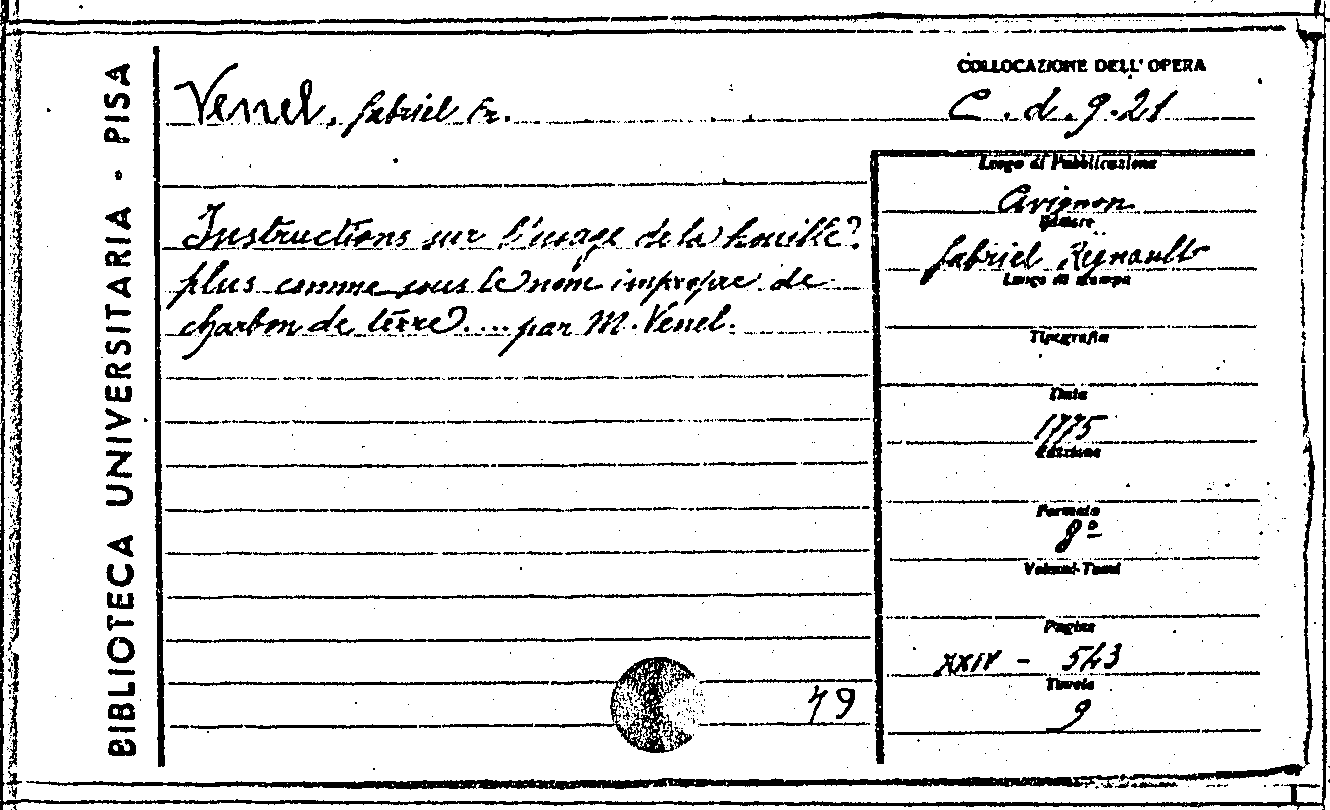 BIBLIOTECA UNIVERSITARIA - PISA
Venel, Gabriel Fr.
Instructions sur l'usage de la houille?
plus comme sous le nom impropre de
charbon de terre .... par M. Venel.
49
COLLOCAZIONE DELL'OPERA
C. d. 9. 21
Luogo di Pubblicazione
Avignon
Editore
Gabriel Regnault
Luogo di stampa
Tipografia
Data
1775
Edizione
Formato
8º
Volumi-Tomi
Pagine
XXIV - 543
Tavole
9